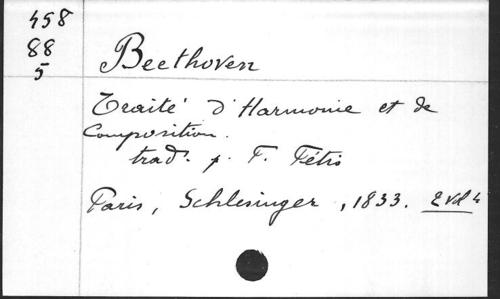 458
88
5
Beethoven
Traité d'Harmonie et de
Composition.
trad. p. F. Fétis
Paris, Schlesinger, 1833. 2 vol 4